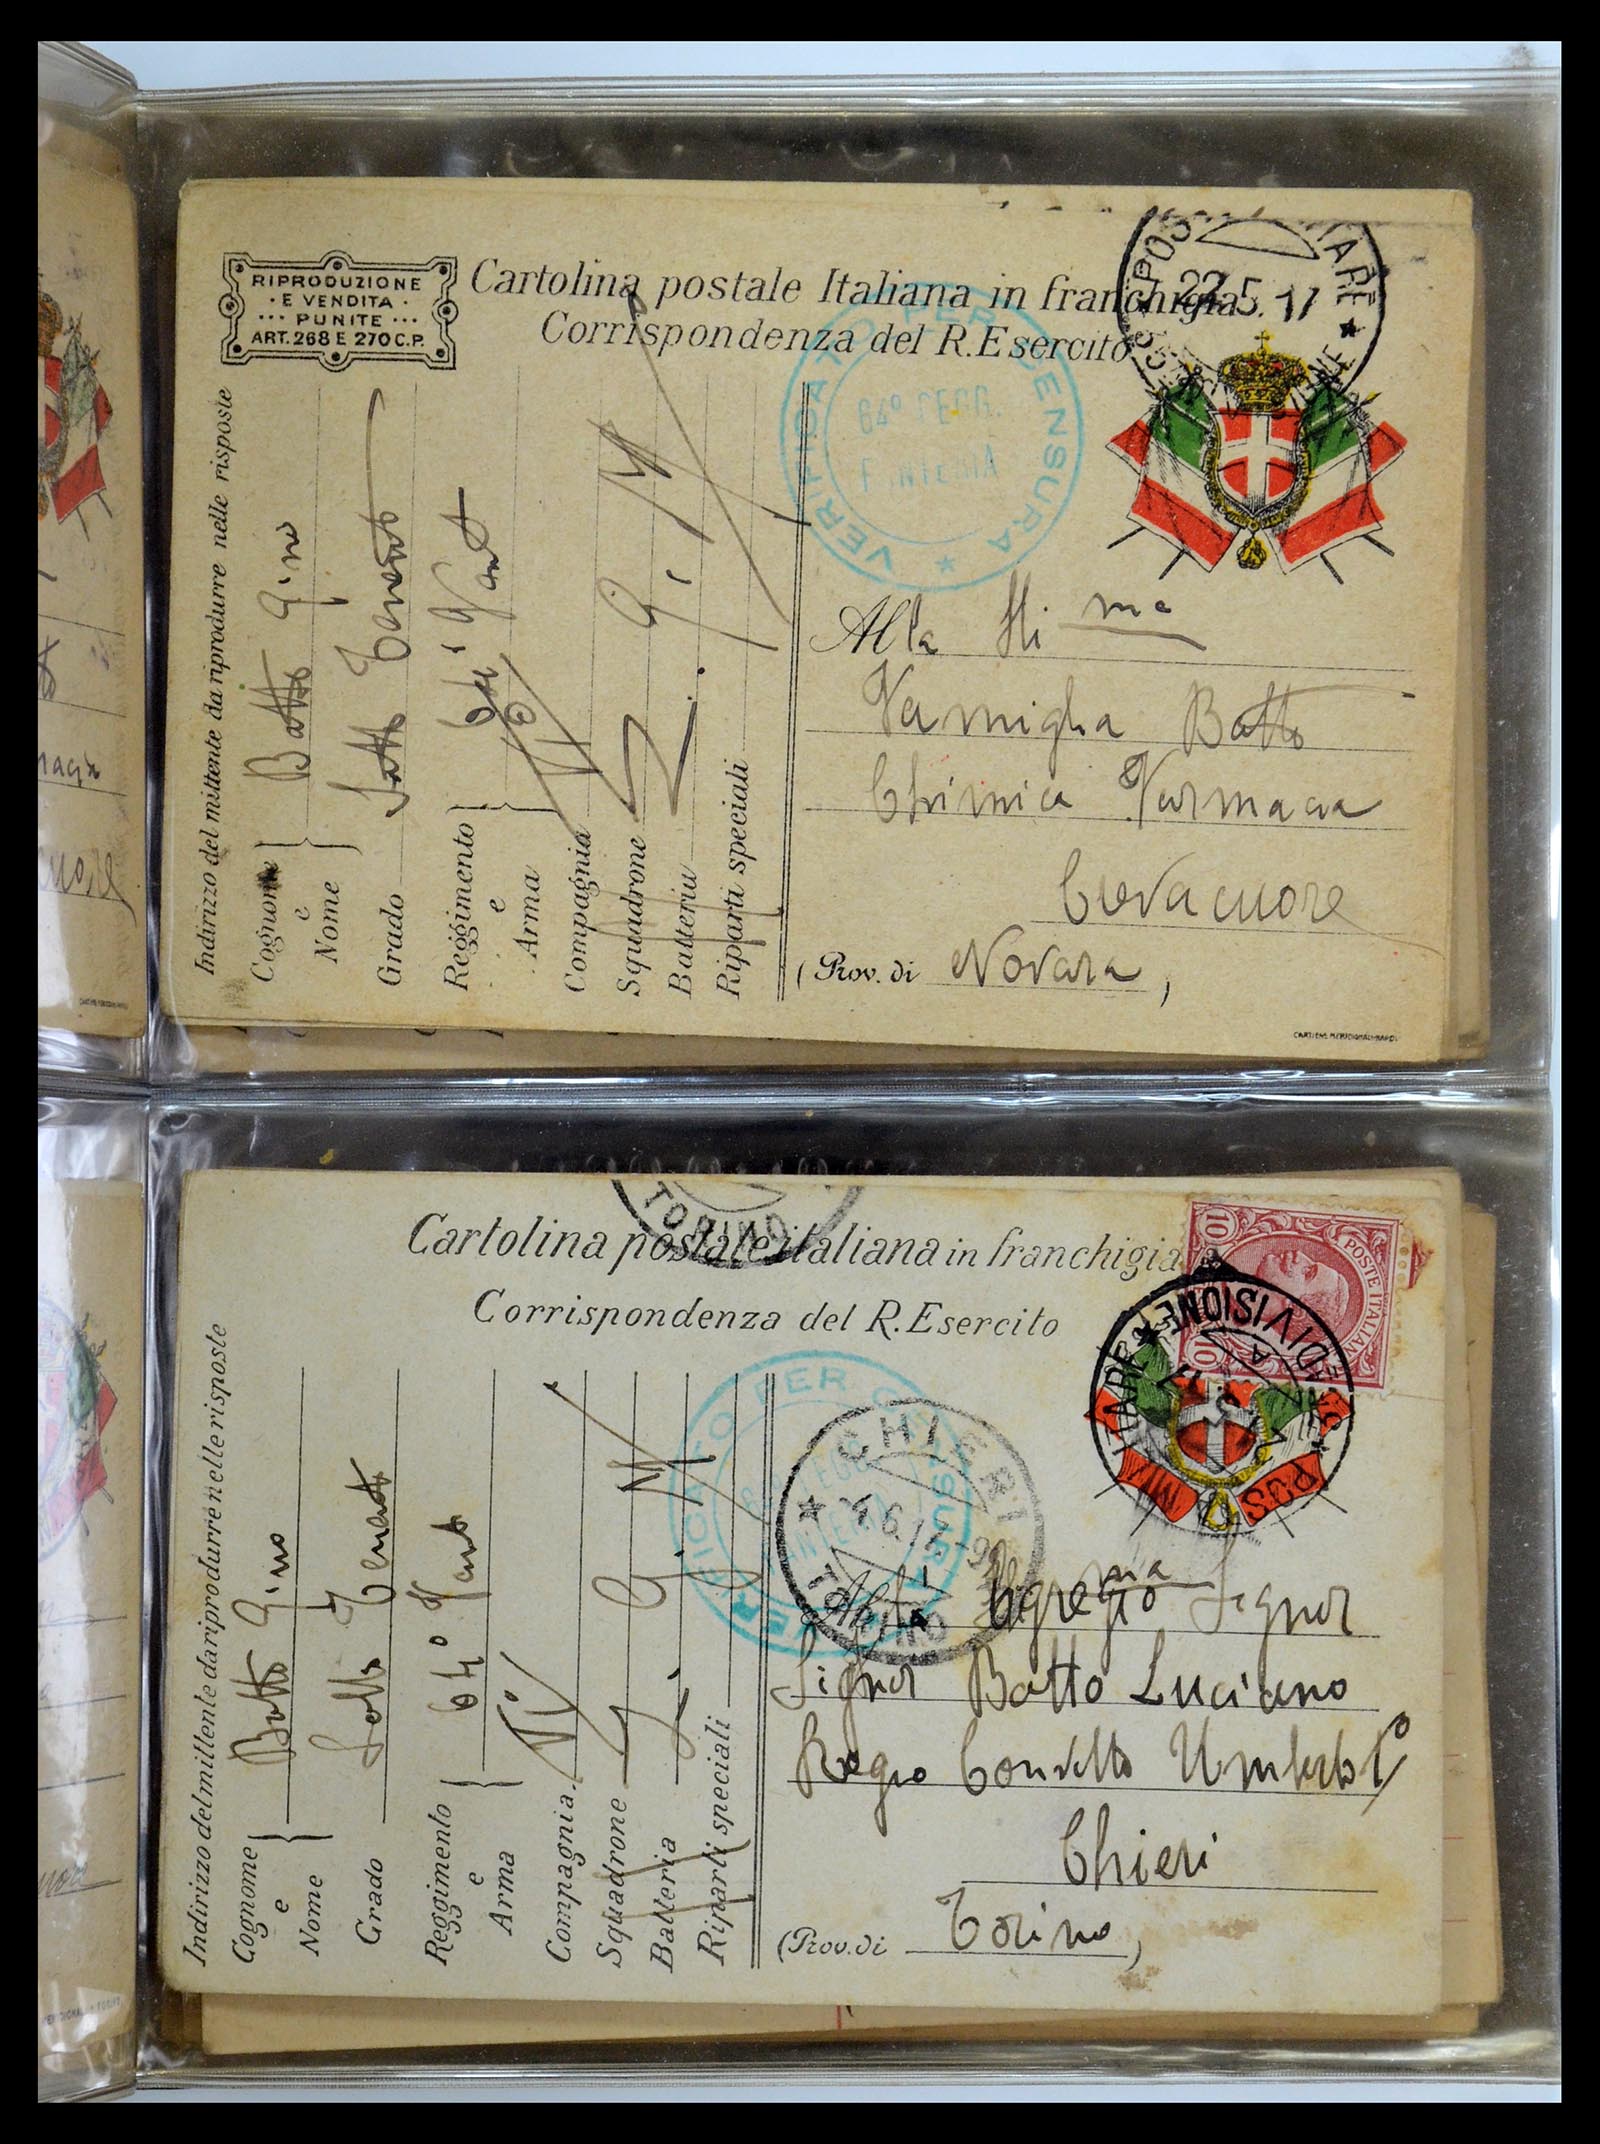 RIPRODUZIONE
· E VENDITA ·
··· PUNITE ···
ART. 268 E 270 C.P.
Cartolina postale Italiana in franchigia
Corrispondenza del R. Esercito
22.5.17
VERIFICATO PER CENSURA
64º REGG.
Indirizzo del mittente da riprodurre nelle risposte
Cognome e Nome
Batto Gino
Grado
Sotto Tenente
Reggimento e Arma
64º Fant
Compagnia
Squadrone
Batteria
Riparti speciali
Alla Ill ma
Famiglia Batto
Chimica Farmacia
Crevacuore
(Prov. di Novara,
CARTIENE MERIDIONALI-NARDI
TORINO
Cartolina postale italiana in franchigia
Corrispondenza del R. Esercito
POSTE ITALIANE
10
10
DIVISIONE
POS
VERIFICATO PER CENSURA
CHIERI
TORINO
Indirizzo del mittente da riprodurre nelle risposte
Cognome e Nome
Batto Gino
Grado
Sotto Tenente
Reggimento e Arma
64º Fant
Compagnia
Squadrone
Batteria
Riparti speciali
Alla Egregio Signor
Signor Batto Luciano
Regio Convitto Umberto Iº
Chieri
(Prov. di Torino,